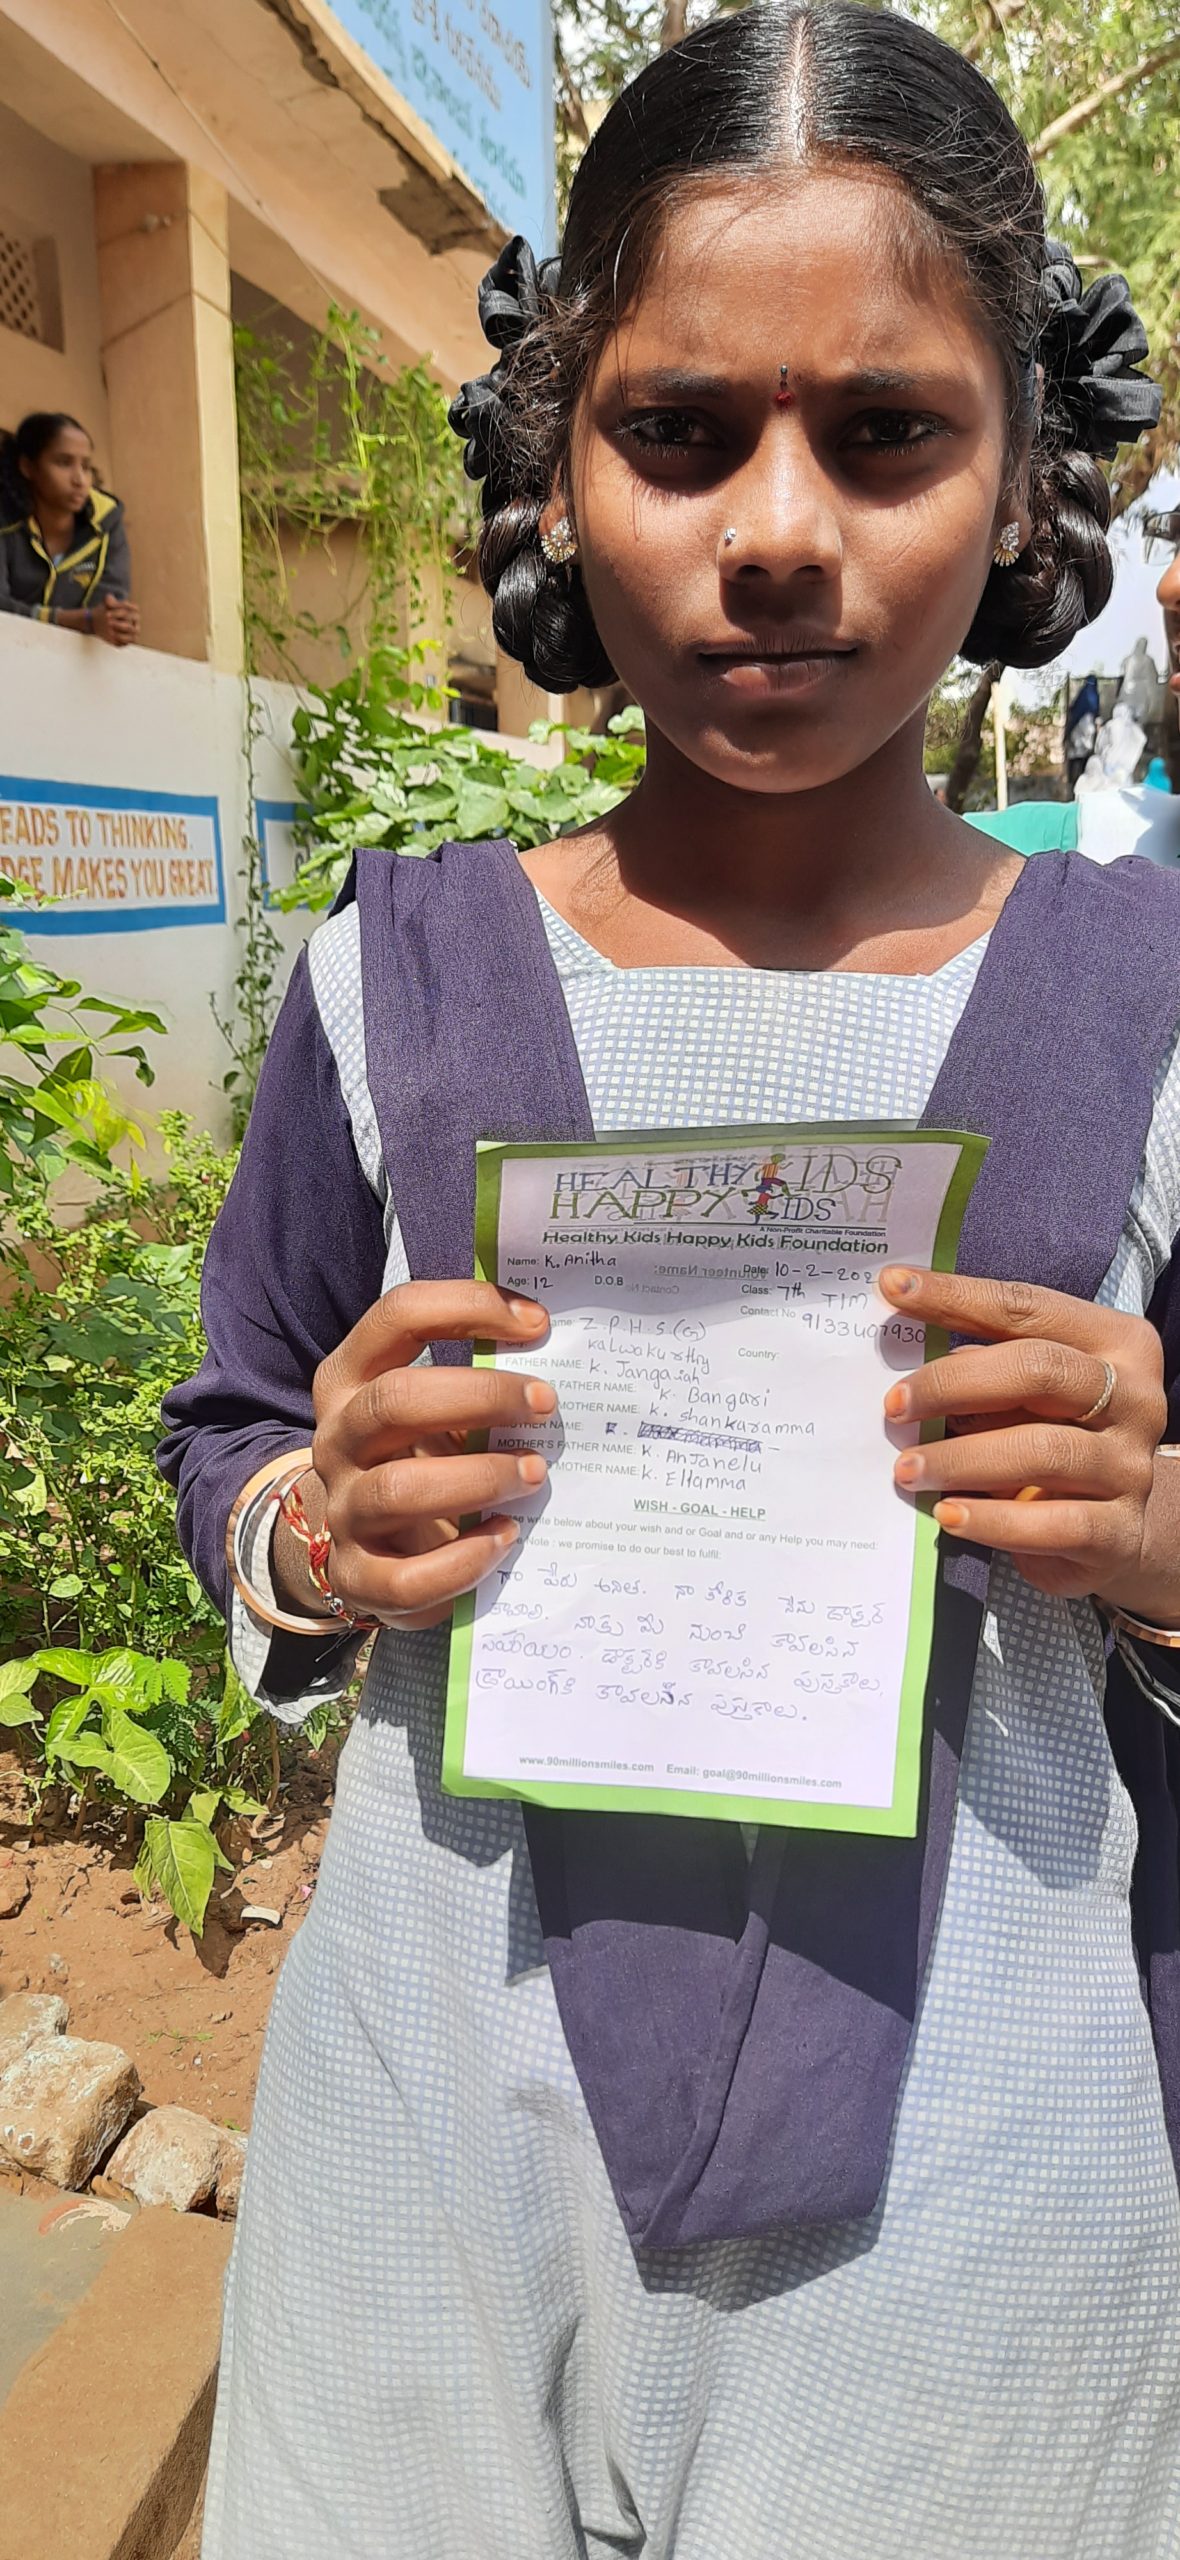 EADS TO THINKING.
DGE MAKES YOU GREAT
HEALTHY KIDS
HAPPY KIDS
A Non-Profit Charitable Foundation
Healthy Kids Happy Kids Foundation
Name: K. Anitha Date: 10-2-202
Age: 12 D.O.B Class: 7th T/M
ame: Z.P.H.S.(G) Contact No 9133407930
Kalwakurthy Country:
FATHER NAME: K. Jangaiah
FATHER NAME: K. Bangari
MOTHER NAME: K. Shankaramma
MOTHER NAME: K.
MOTHER'S FATHER NAME: K. Anjanelu
MOTHER NAME: K. Ellamma
WISH - GOAL - HELP
write below about your wish and or Goal and or any Help you may need:
Note : we promise to do our best to fulfil:
నా పేరు అనిత. నా కోరిక నేను డాక్టర్
కావాలి. నాకు మీ నుంచి కావలసిన
సహాయం. డాక్టర్‌కి కావలసిన పుస్తకాలు,
డ్రాయింగ్‌కి కావలసిన పుస్తకాలు.
www.90millionsmiles.com Email: goal@90millionsmiles.com